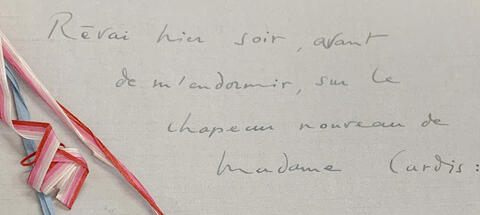 Rêvai hier soir, avant
de m'endormir, sur le
chapeau nouveau de
Madame Cardis :